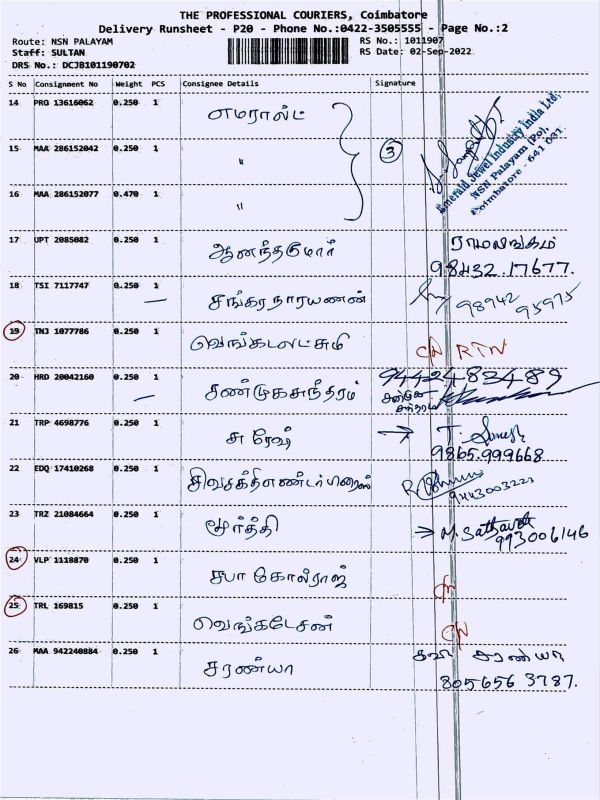 THE PROFESSIONAL COURIERS, Coimbatore
Delivery Runsheet - P20 - Phone No.:0422-3505555 - Page No.:2
Route: NSN PALAYAM
RS No.: 1011907
Staff: SULTAN
RS Date: 02-Sep-2022
DRS No.: DCJB101190702
S No Consignment No Weight PCS Consignee Details Signature
14 PRO 13616062 0.250 1 எமரால்ட்
15 MAA 286152042 0.250 1 " 3
16 MAA 286152077 0.470 1 "
Emerald Jewel Industry India Ltd,
NSN Palayam (Po),
Coimbatore - 641 031.
17 UPT 2085082 0.250 1 ஆனந்தகுமார் ராமலிங்கம்
98432.17677.
18 TSI 7117747 0.250 1 சங்கர நாராயணன் 98942
95975
19 TNJ 1077786 0.250 1 வெங்கடலட்சுமி RTN
20 HRD 20042160 0.250 1 சண்முகசுந்தரம் 9442483489
சண்முக
சுந்தரம்
21 TRP 4698776 0.250 1 சுரேஷ் → T. Suresh
9865.999668
22 EDQ 17410268 0.250 1 சிவசக்தி எண்டர்பிரைஸ்
9443003223
23 TRZ 21084664 0.250 1 மூர்த்தி → M.
993006146
24 VLP 1118870 0.250 1 சபா கோல்ராஜ்
25 TRL 169815 0.250 1 வெங்கடேசன்
26 MAA 942240884 0.250 1 சரண்யா சரண்யா
805656 3787.